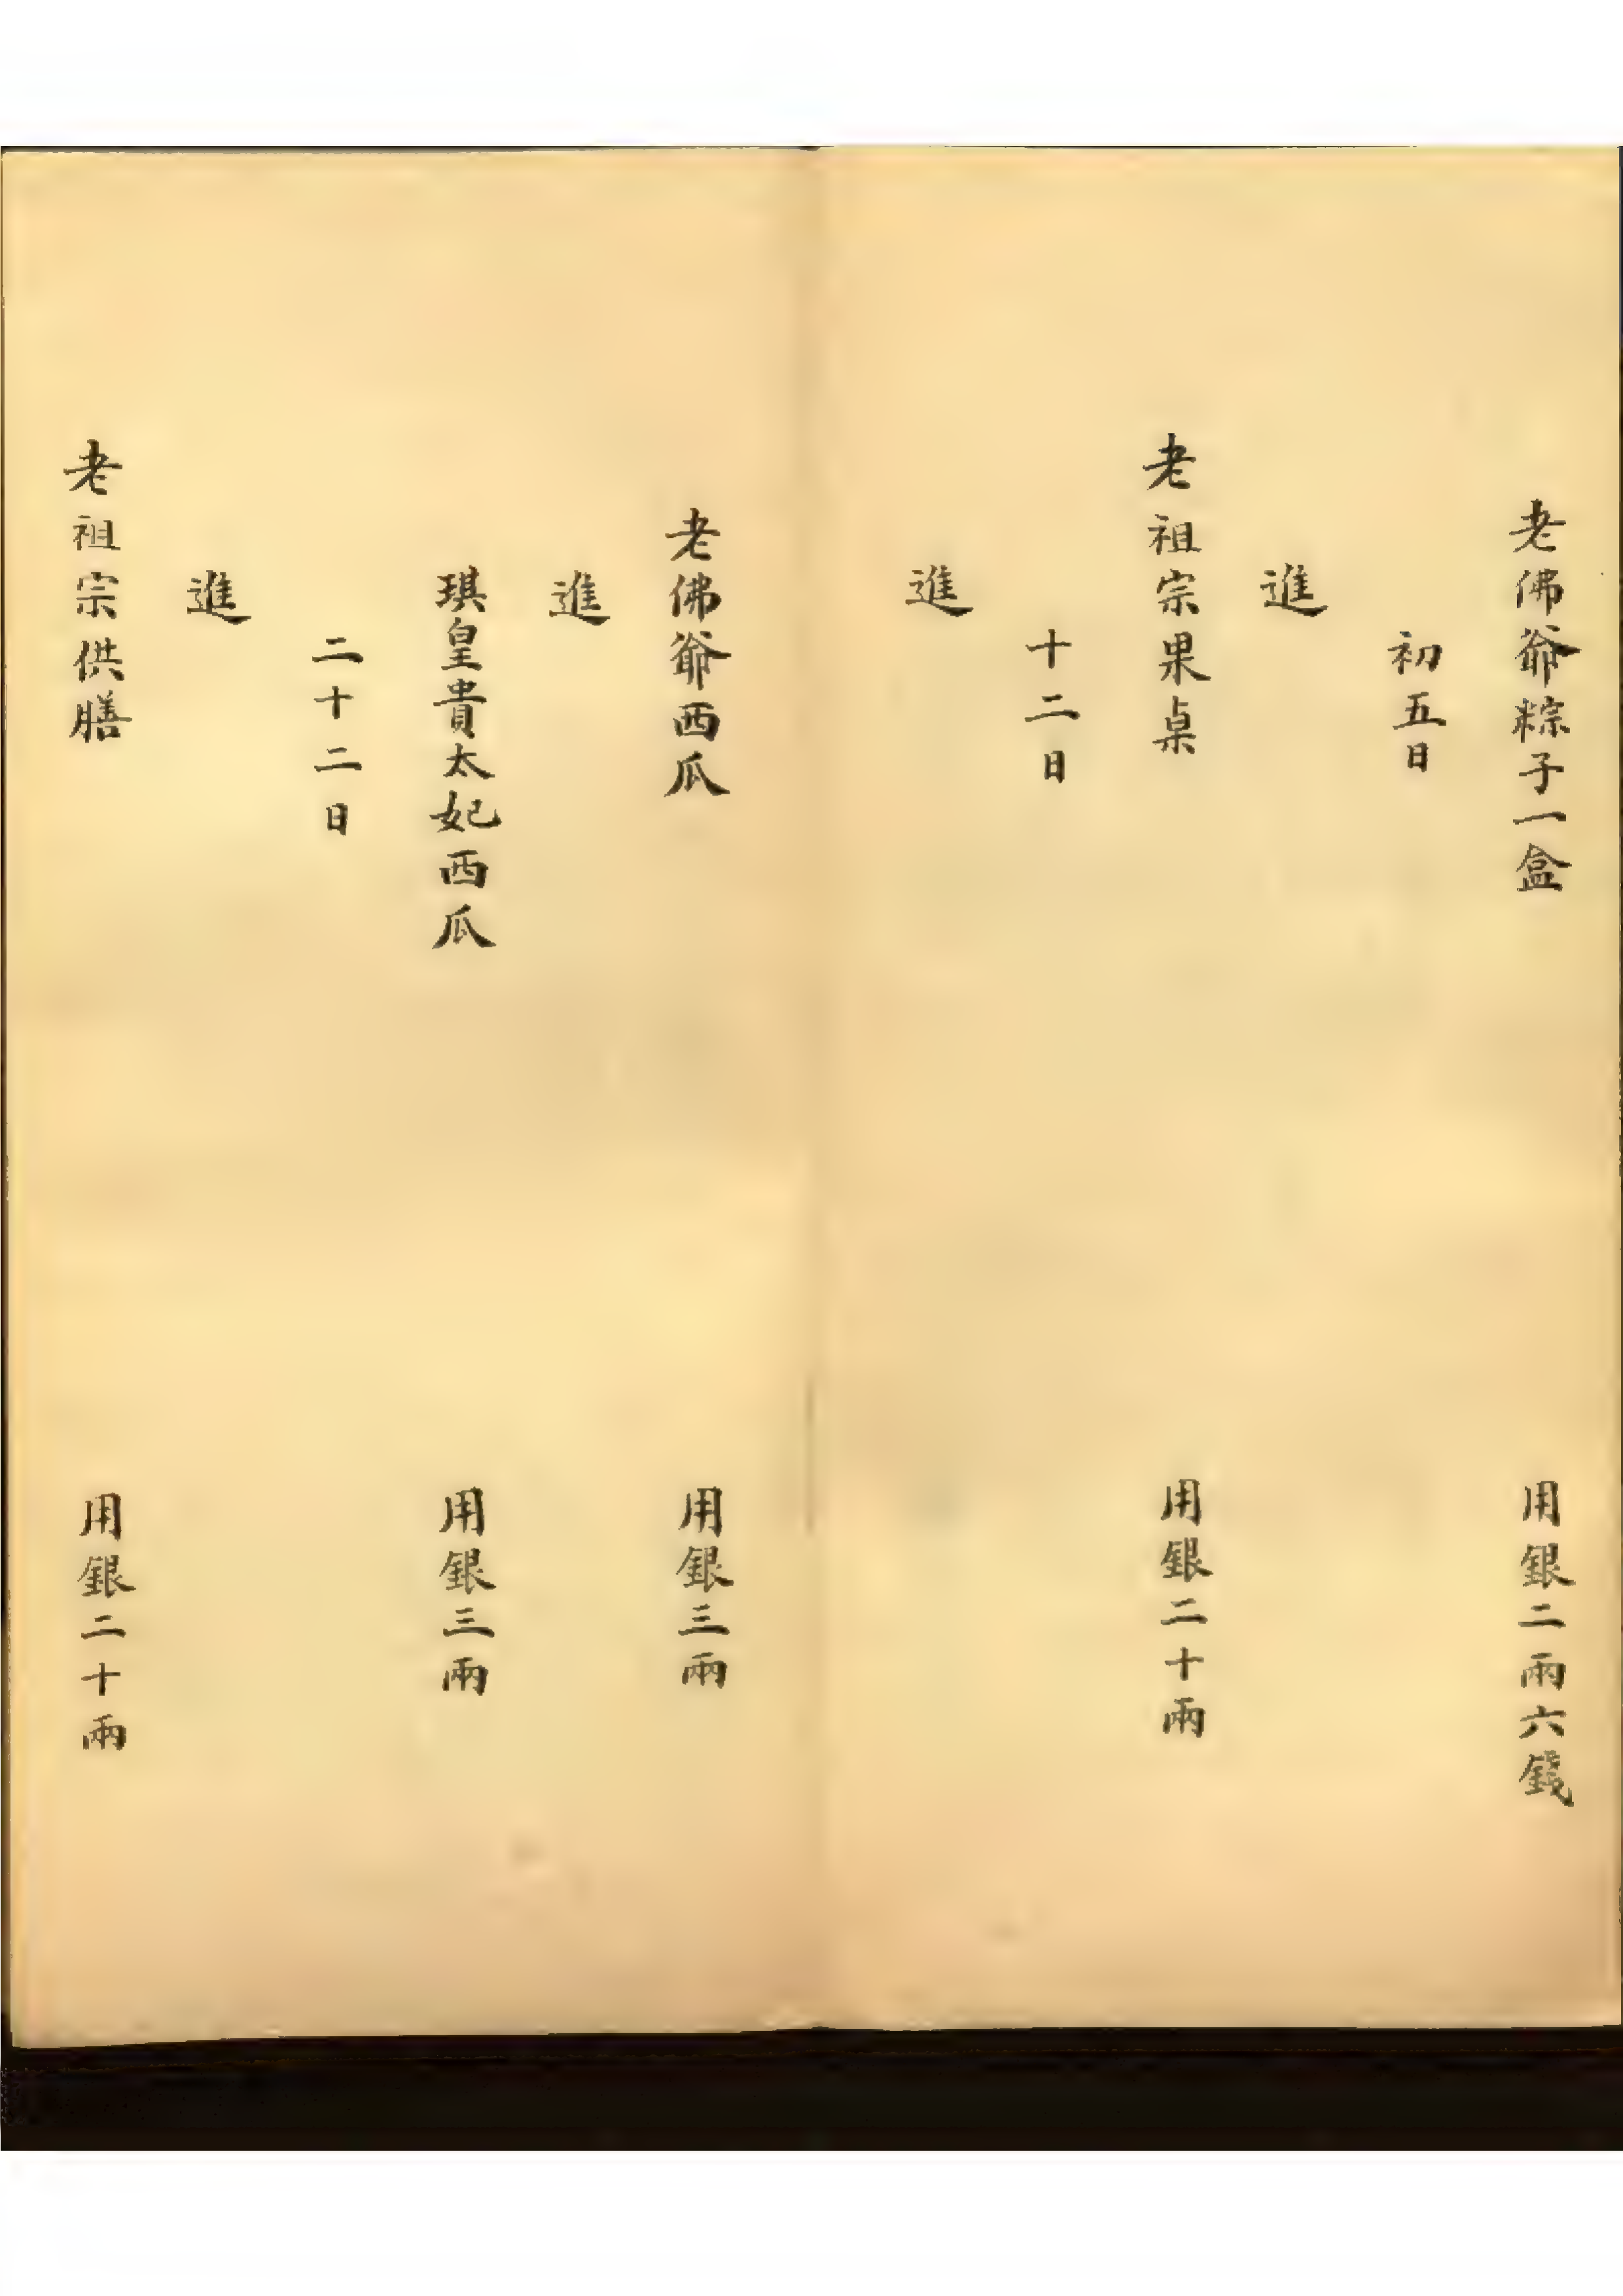 老佛爺粽子一盒 用銀二兩六錢
初五日
進
老祖宗果桌 用銀二十兩
十二日
進
老佛爺西瓜 用銀三兩
進
琪皇貴太妃西瓜 用銀三兩
二十二日
進
老祖宗供膳 用銀二十兩